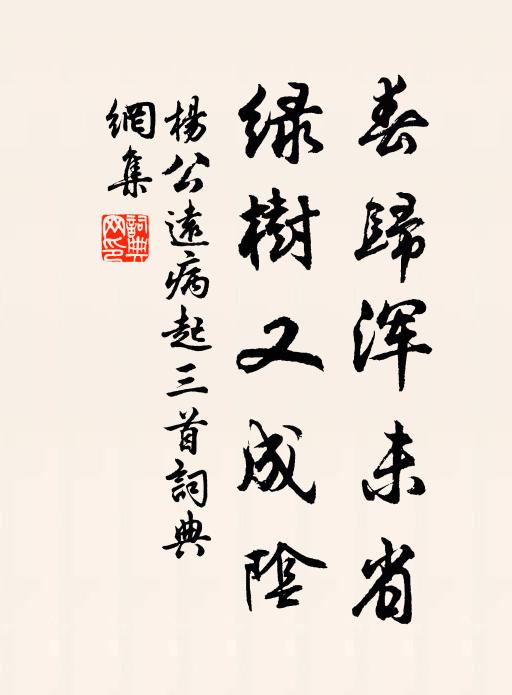 春歸渾未省
綠樹又成陰
楊公遠病起三首詞典
網集
詞典網印